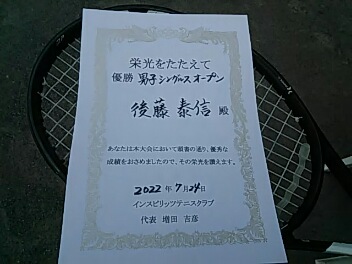 栄光をたたえて
優勝 男子シングルスオープン
後藤 泰信 殿
あなたは本大会において頭書の通り、優秀な
成績をおさめましたので、その栄光を讃えます。
2022年7月24日
インスピリッツテニスクラブ
代表 増田 吉彦